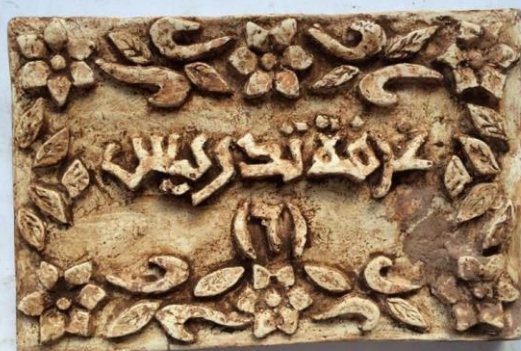 غرفة تدريس
(٦)